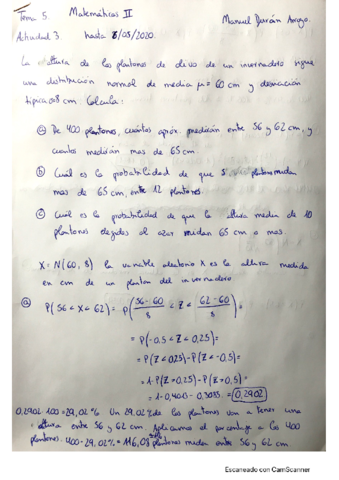 Tema 5. Matemáticas II
Manuel Durán Arroyo.
Actividad 3 hasta 8/03/2020.
La altura de los plantones de olivo de un invernadero sigue
una distribución normal de media μ = 60 cm y desviación
típica 8 cm. Calcula:
a) De 400 plantones, cuántos aprox. medirán entre 56 y 62 cm, y
cuantos medirán mas de 65 cm.
b) Cuál es la probabilidad de que 5 plantones midan
mas de 65 cm, entre 12 plantones.
c) Cual es la probabilidad de que la altura media de 10
plantones elegidos al azar midan 65 cm o mas.
X = N(60, 8) la variable aleatoria X es la altura medida
en cm de un planton del invernadero
a) P(56 < X < 62) = P(56-60/8 < Z < 62-60/8) =
= P(-0,5 < Z < 0,25) =
= P(Z < 0,25) - P(Z < -0,5) =
= 1 - P(Z > 0,25) - P(Z > 0,5) =
= 1 - 0,4013 - 0,3085 = 0,2902
0,2902 · 100 = 29,02% Un 29,02% de los plantones van a tener una
altura entre 56 y 62 cm. Aplicamos el porcentaje a los 400
plantones. 400 · 29,02% = 116,08 plantones miden entre 56 y 62 cm
Escaneado con CamScanner